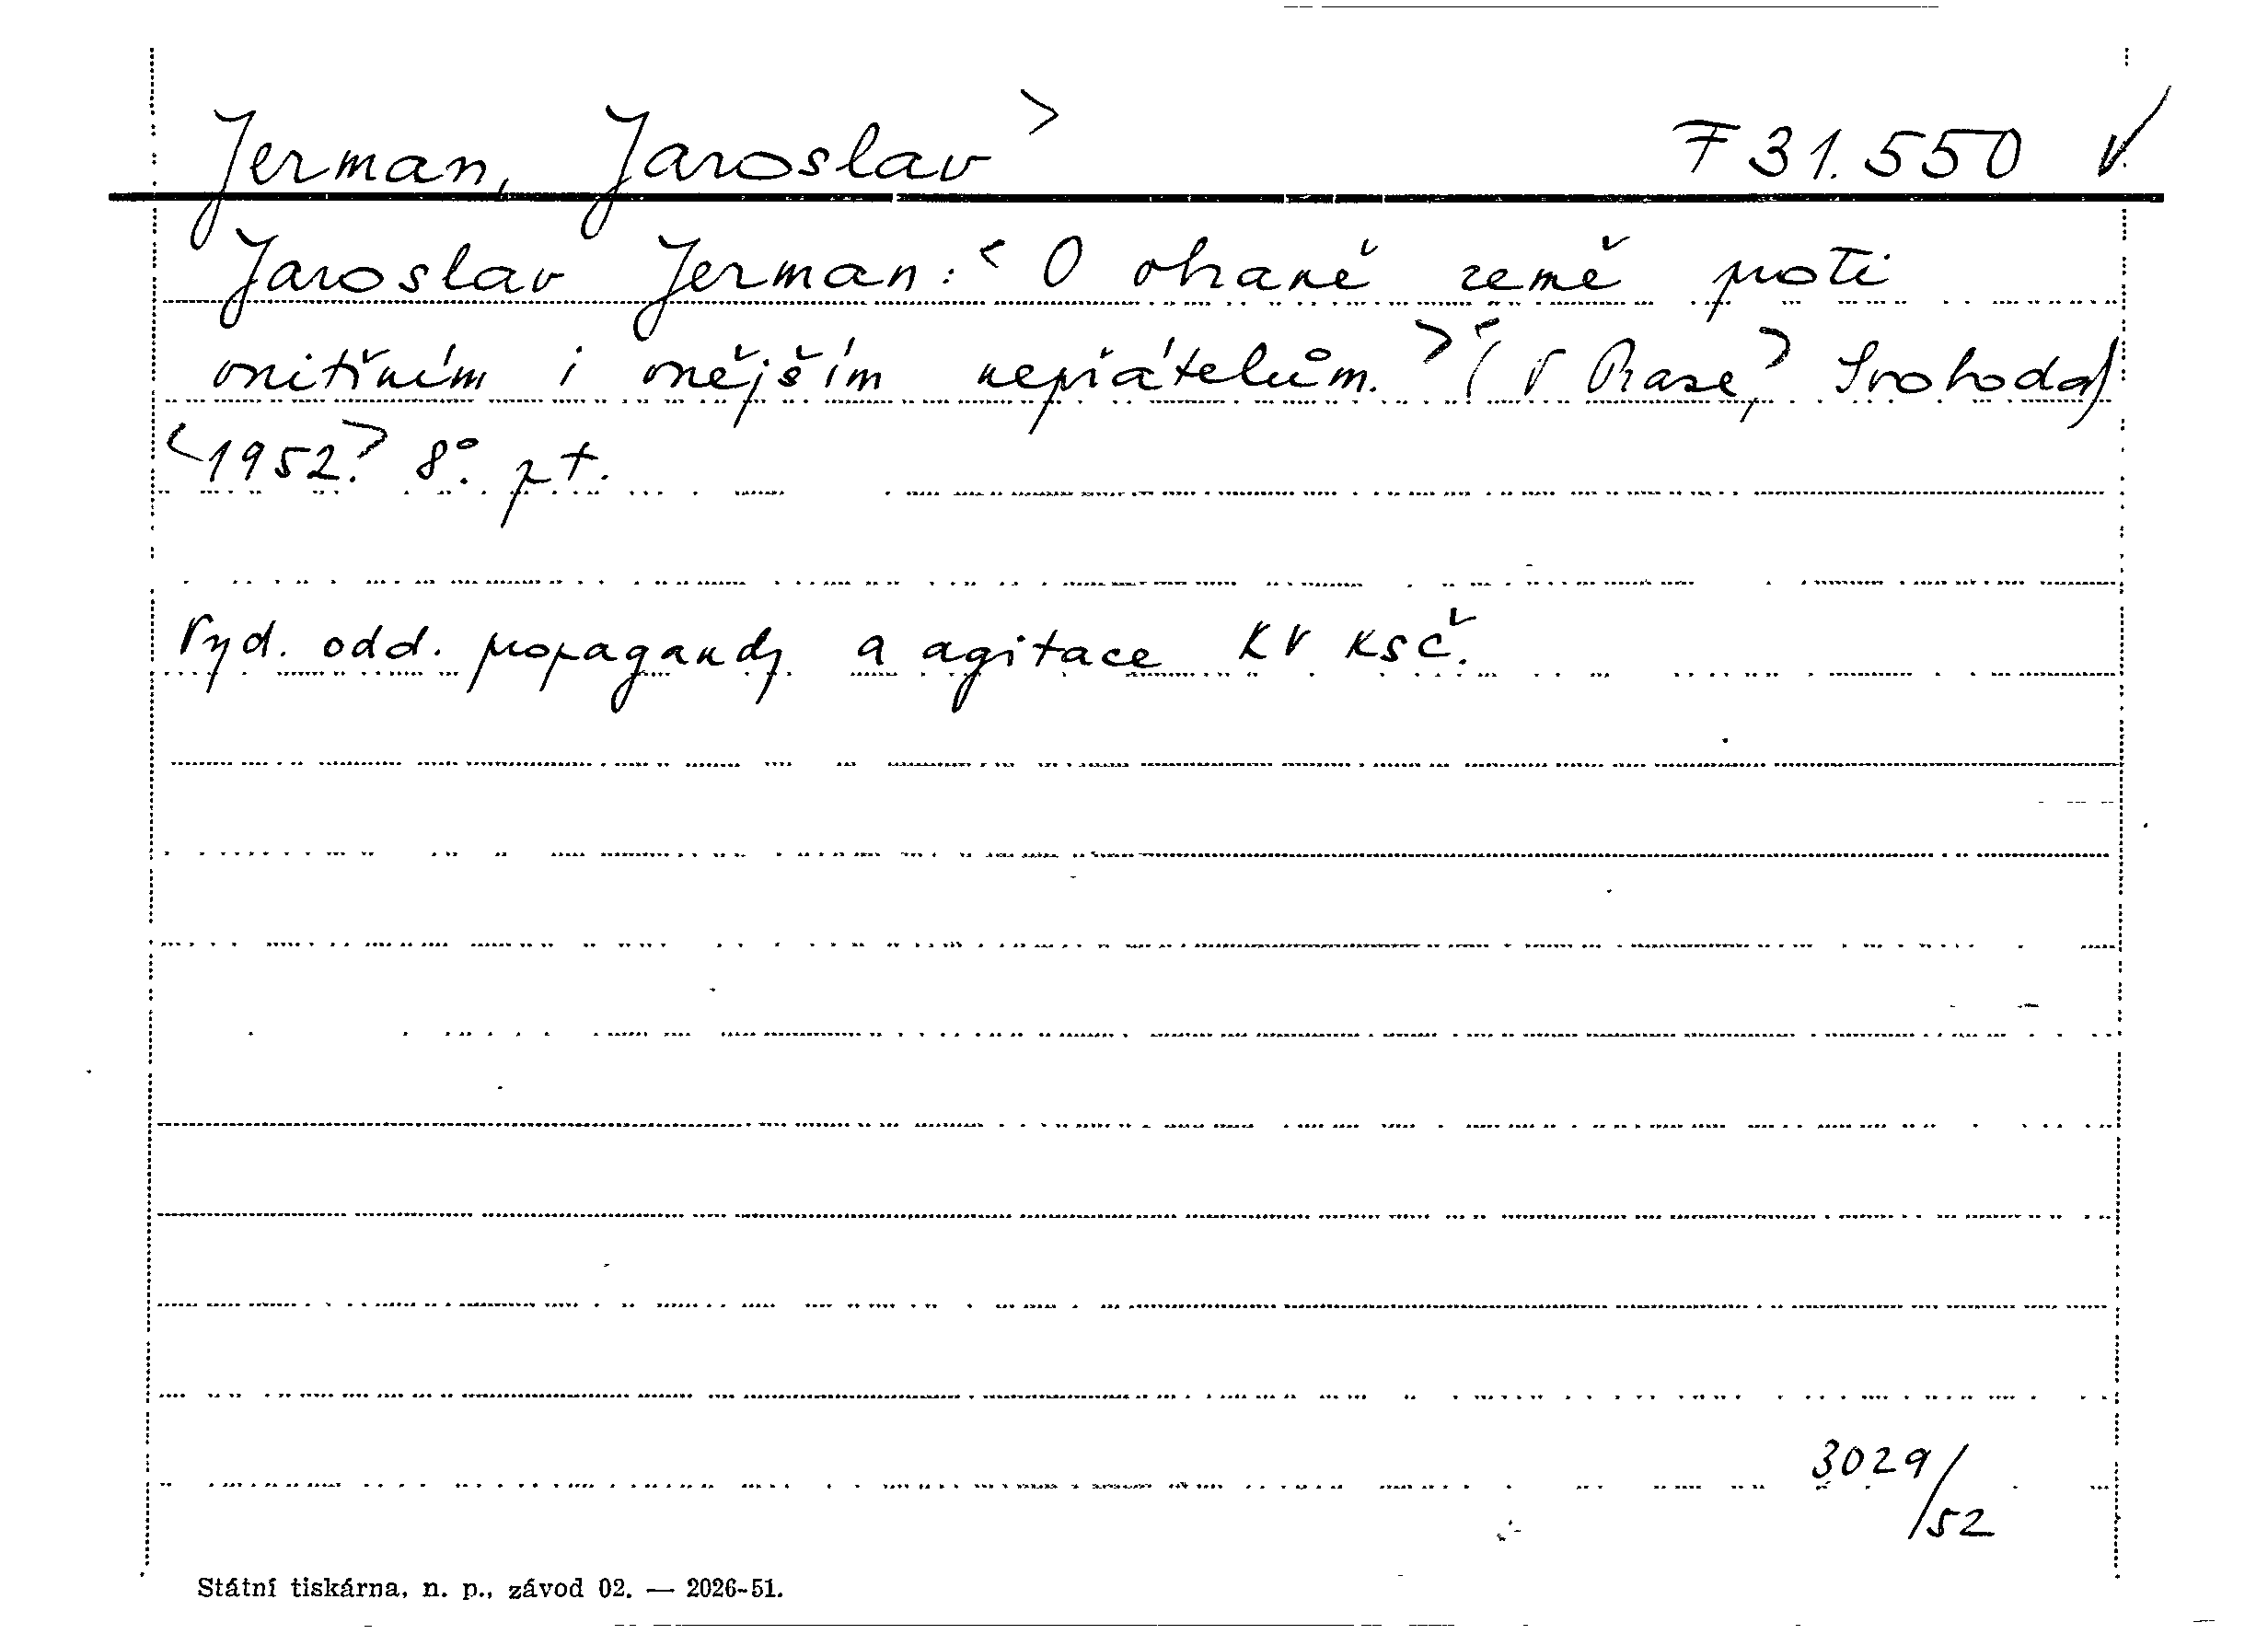 Jerman, Jaroslav > F 31.550 V.
Jaroslav Jerman: < O obraně země proti
vnitřním i vnějším nepřátelům. > (< V Praze, > Svoboda)
<1952.> 8°. pt.
Vyd. odd. propagandy a agitace KV KSČ.
3029/
52
Státní tiskárna, n. p., závod 02. — 2026-51.